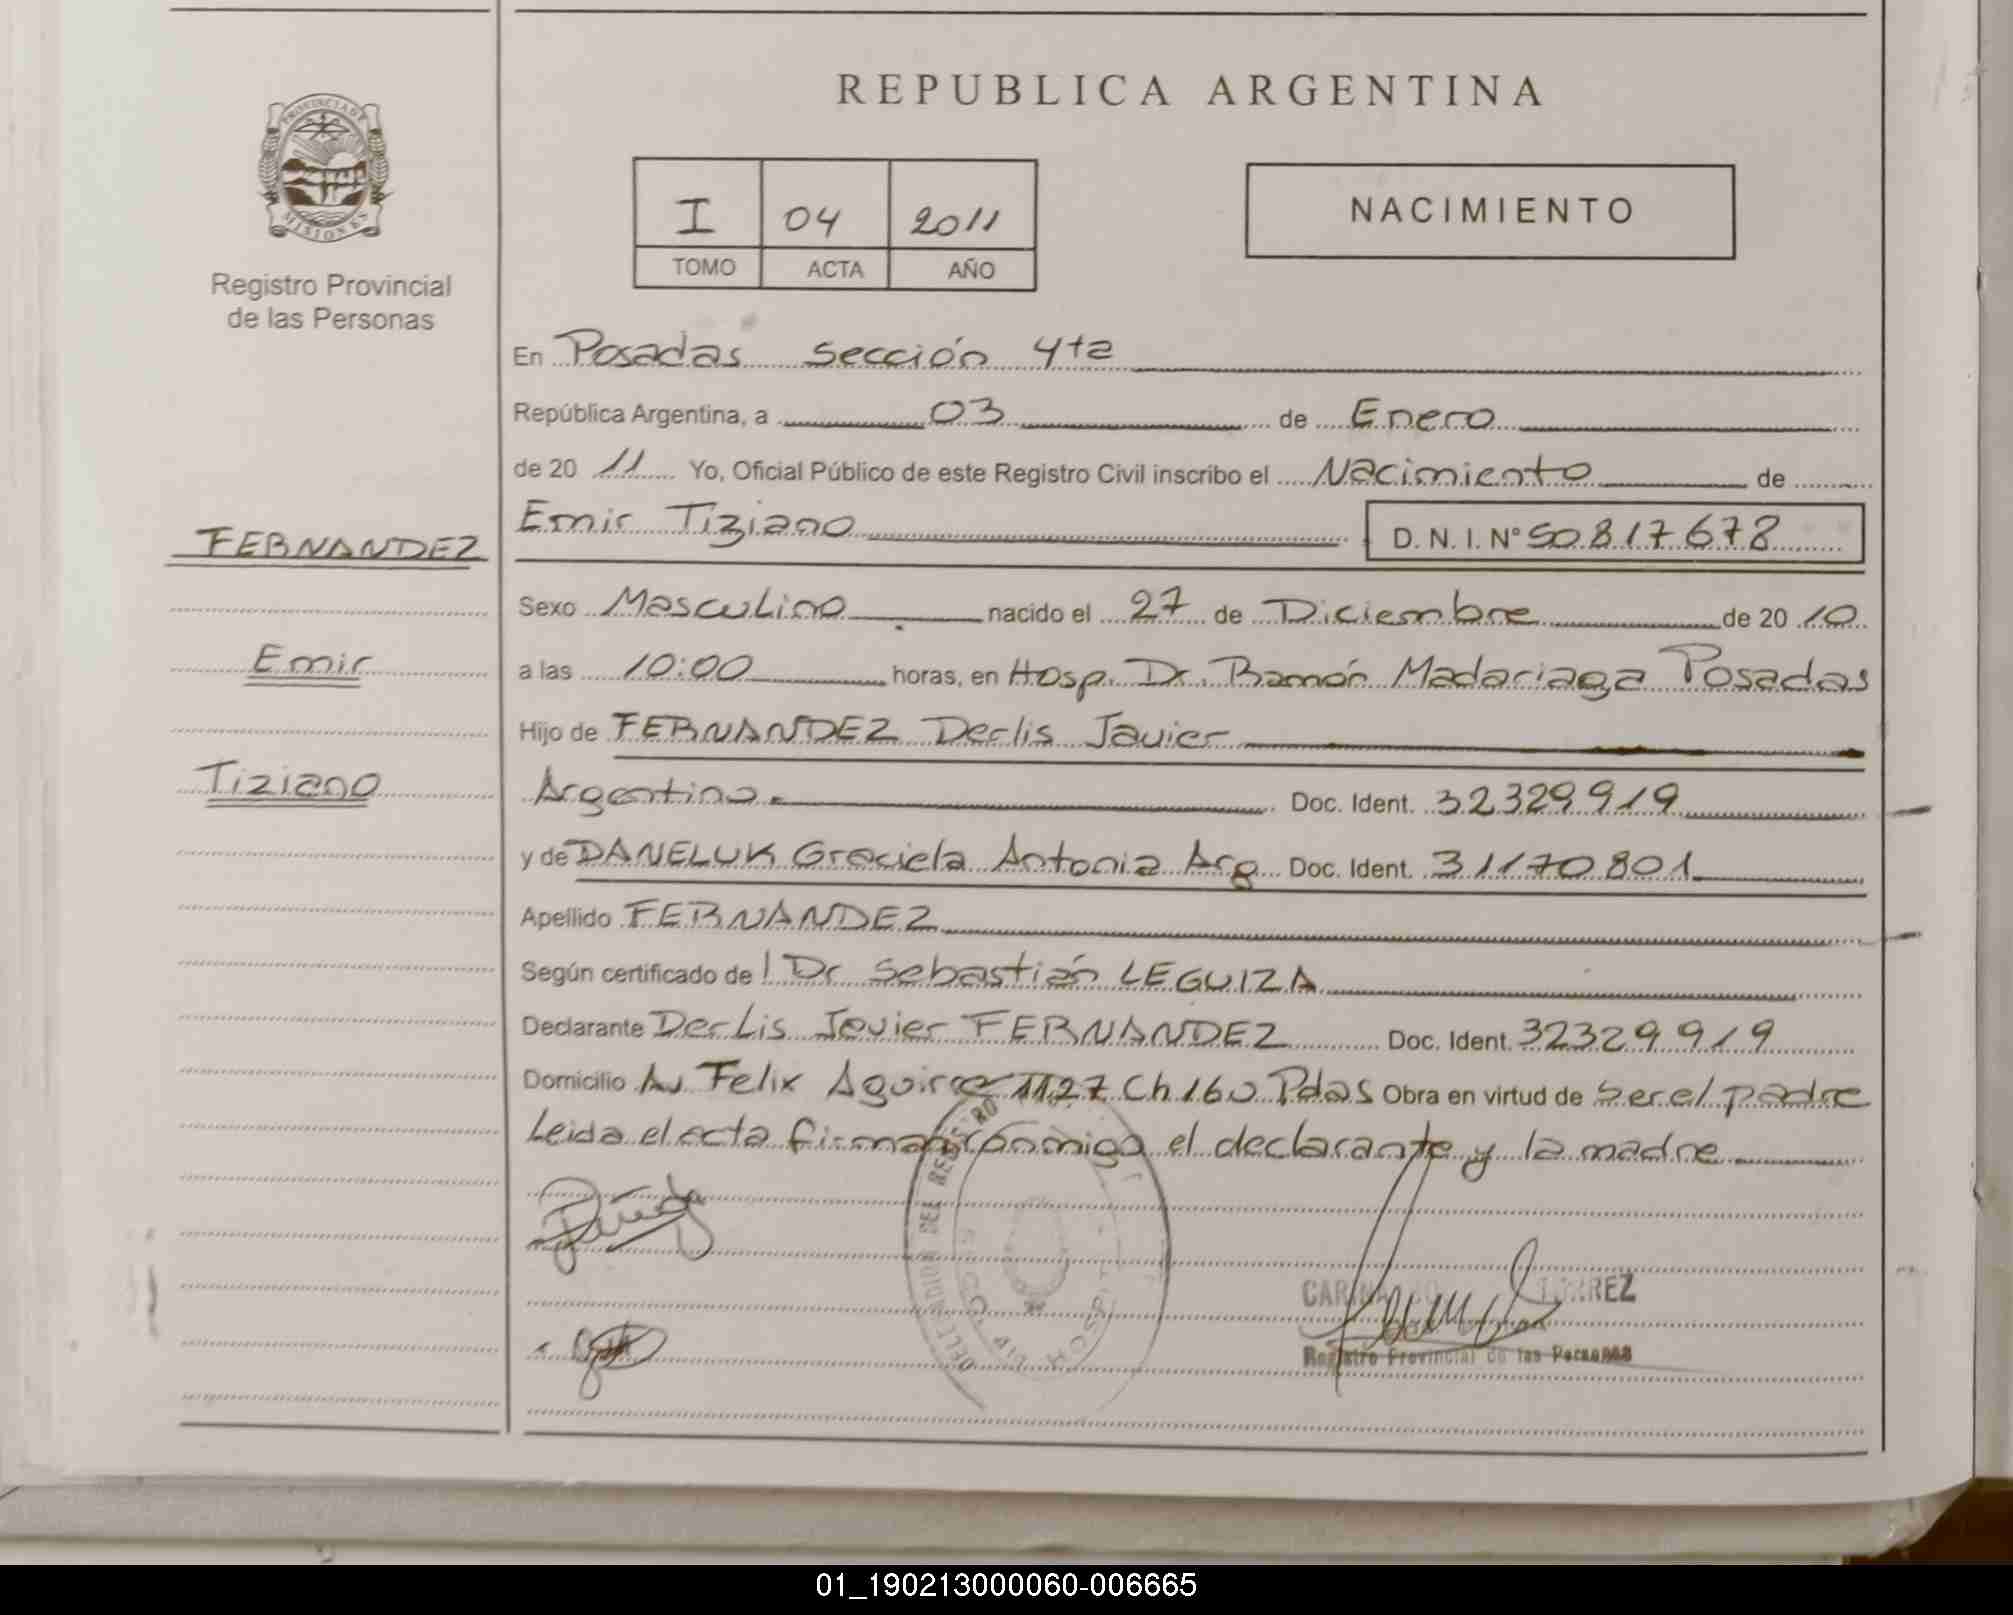 REPUBLICA ARGENTINA
PROVINCIA DE
MISIONES
Registro Provincial
de las Personas
I 04 2011
TOMO ACTA AÑO
NACIMIENTO
En Posadas sección 4ta
República Argentina, a 03 de Enero
de 20 11 Yo, Oficial Público de este Registro Civil inscribo el Nacimiento de
Emir Tiziano D. N. I. N° 50817678
FERNANDEZ
Emir
Tiziano
Sexo Masculino nacido el 27 de Diciembre de 20 10
a las 10:00 horas, en Hosp. Dr. Ramón Madariaga Posadas
Hijo de FERNANDEZ Derlis Javier
Argentino. Doc. Ident. 32329919
y de DANELUK Graciela Antonia Arg Doc. Ident. 31170801
Apellido FERNANDEZ
Según certificado de l Dr Sebastián LEGUIZA
Declarante Derlis Javier FERNANDEZ Doc. Ident. 32329919
Domicilio Av Felix Aguirre 1127 Ch 160 Pdas Obra en virtud de ser el padre
Leida el acta firman conmigo el declarante y la madre
Registro Provincial de las Personas
01_190213000060-006665